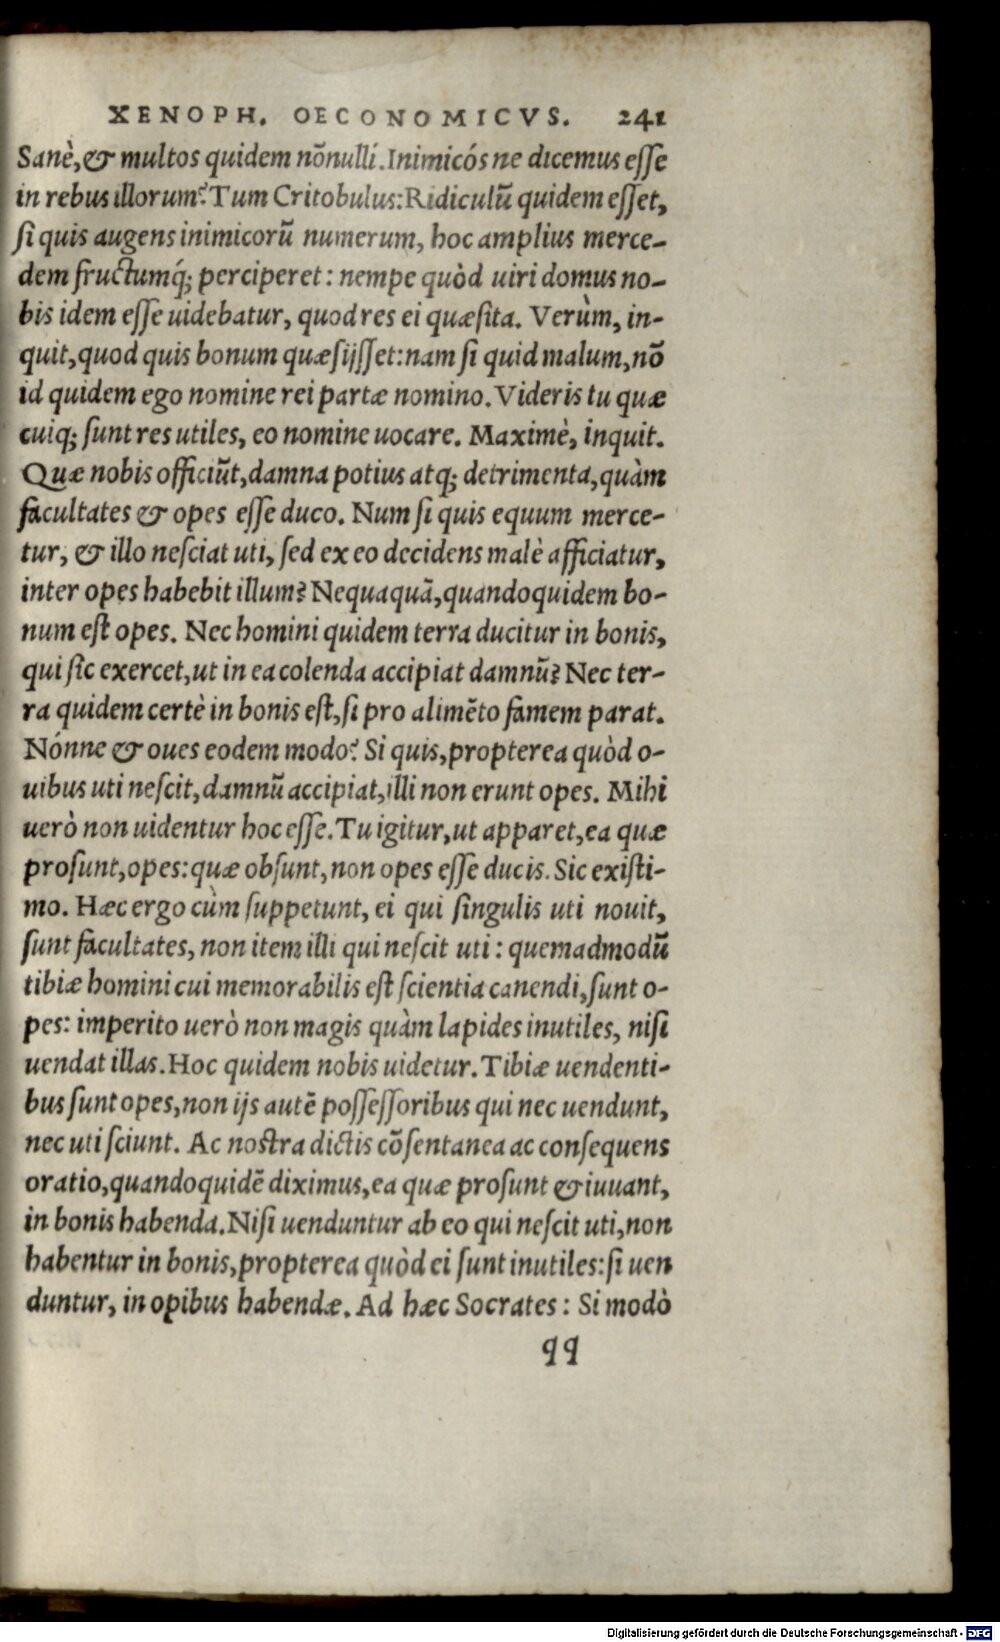 XENOPH. OECONOMICVS. 241
Sanè, & multos quidem nõnulli. Inimicós ne dicemus eſſe
in rebus illorum? Tum Critobulus: Ridiculũ quidem eſſet,
ſi quis augens inimicorũ numerum, hoc amplius merce-
dem fructumq́; perciperet: nempe quòd uiri domus no-
bis idem eſſe uidebatur, quod res ei quæſita. Verùm, in-
quit, quod quis bonum quæſijſſet: nam ſi quid malum, nõ
id quidem ego nomine rei partæ nomino. Videris tu quæ
cuiq; ſunt res utiles, eo nomine uocare. Maximè, inquit.
Quæ nobis officiũt, damna potius atq; detrimenta, quàm
facultates & opes eſſe duco. Num ſi quis equum merce-
tur, & illo neſciat uti, ſed ex eo decidens malè afficiatur,
inter opes habebit illum? Nequaquã, quandoquidem bo-
num eſt opes. Nec homini quidem terra ducitur in bonis,
qui ſic exercet, ut in ea colenda accipiat damnũ? Nec ter-
ra quidem certè in bonis eſt, ſi pro alimẽto famem parat.
Nónne & oues eodem modo? Si quis, propterea quòd o-
uibus uti neſcit, damnũ accipiat, illi non erunt opes. Mihi
uerò non uidentur hoc eſſe. Tu igitur, ut apparet, ea quæ
proſunt, opes: quæ obſunt, non opes eſſe ducis. Sic exiſti-
mo. Hæc ergo cùm ſuppetunt, ei qui ſingulis uti nouit,
ſunt facultates, non item illi qui neſcit uti: quemadmodũ
tibiæ homini cui memorabilis eſt ſcientia canendi, ſunt o-
pes: imperito uerò non magis quàm lapides inutiles, niſi
uendat illas. Hoc quidem nobis uidetur. Tibiæ uendenti-
bus ſunt opes, non ijs autẽ poſſeſſoribus qui nec uendunt,
nec uti ſciunt. Ac noſtra dictis cõſentanea ac conſequens
oratio, quandoquidẽ diximus, ea quæ proſunt & iuuant,
in bonis habenda. Niſi uenduntur ab eo qui neſcit uti, non
habentur in bonis, propterea quòd ei ſunt inutiles: ſi uen
duntur, in opibus habendæ. Ad hæc Socrates: Si modò
qq
Digitalisierung gefördert durch die Deutsche Forschungsgemeinschaft - DFG